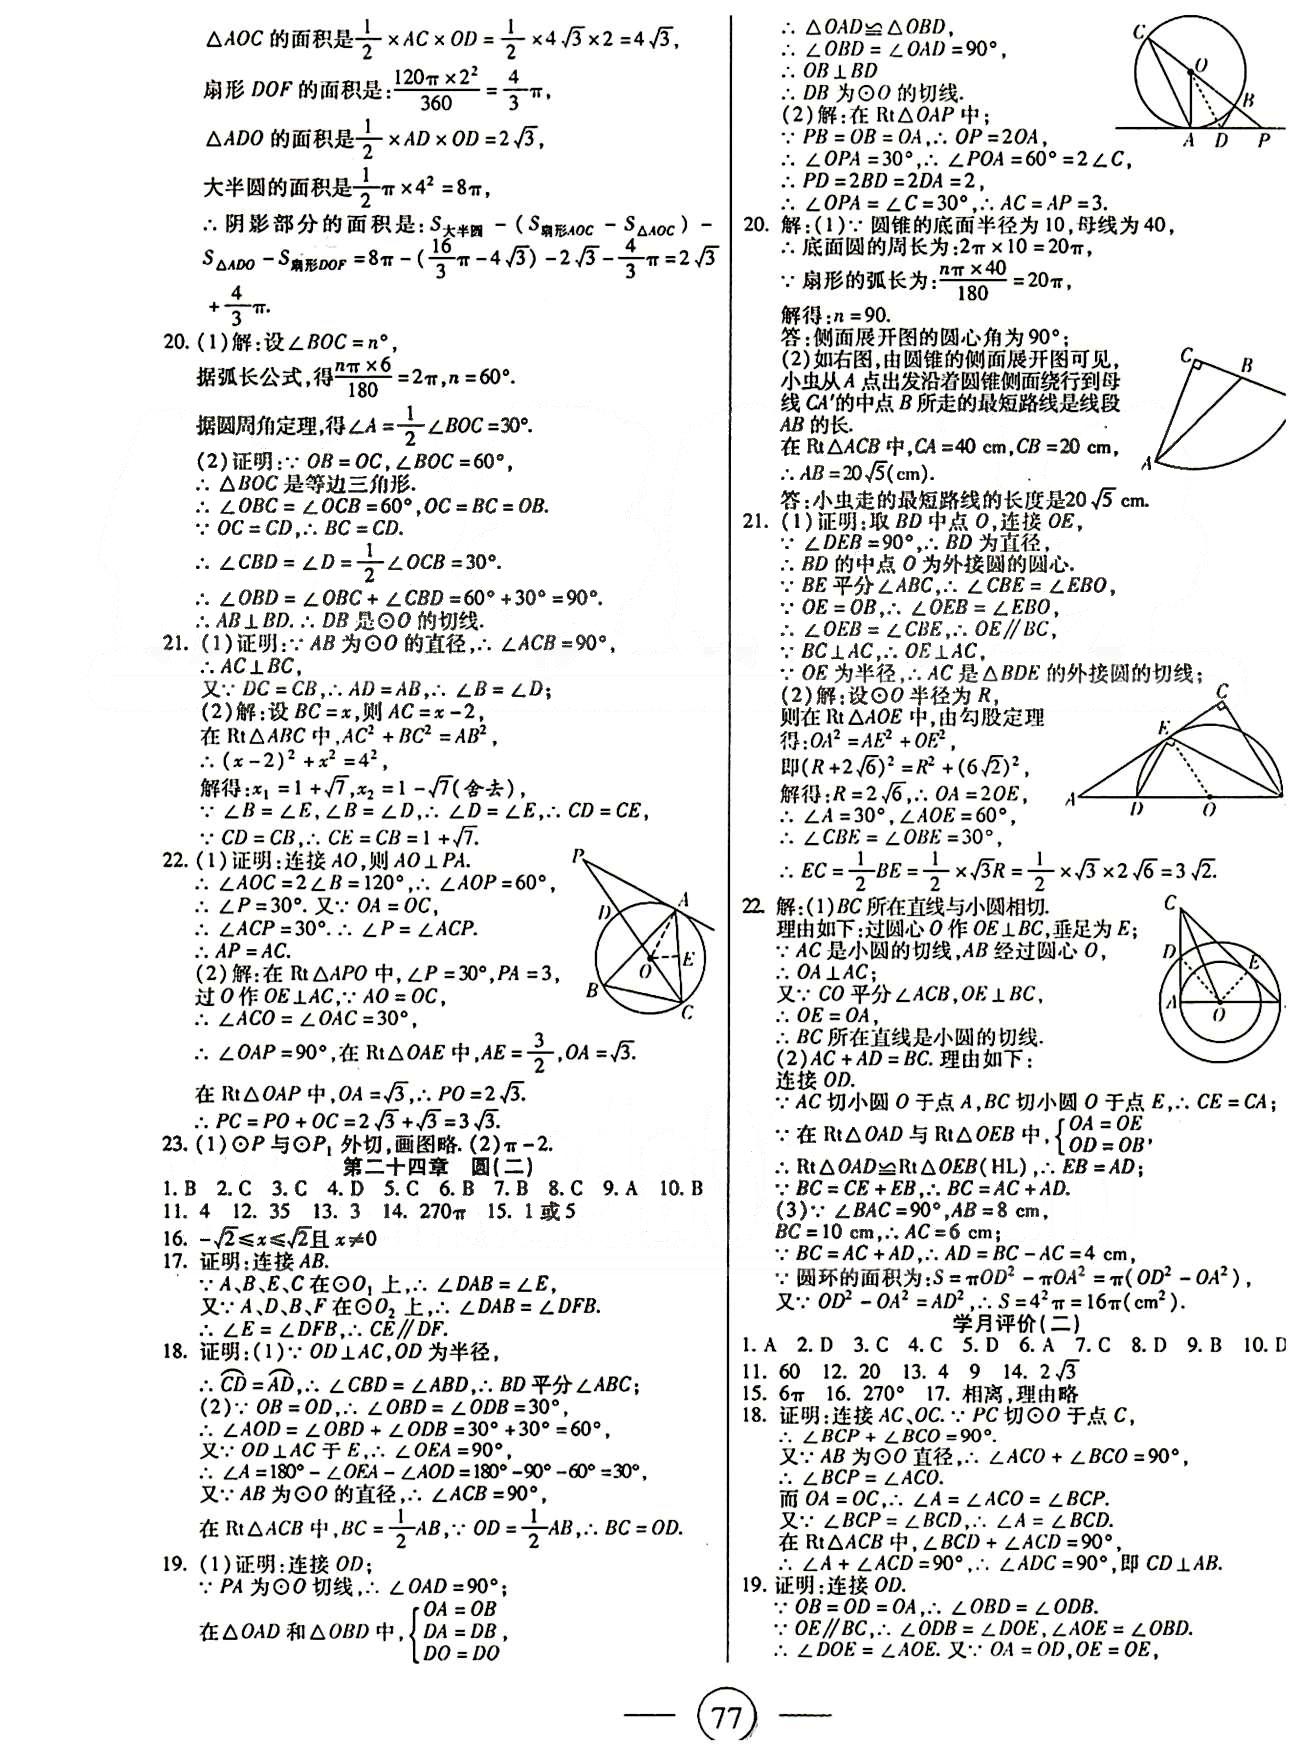 △AOC 的面积是1/2×AC×OD=1/2×4√3×2=4√3,
扇形 DOF 的面积是:120π×2²/360=4/3π,
△ADO 的面积是1/2×AD×OD=2√3,
大半圆的面积是1/2π×4²=8π,
∴阴影部分的面积是:S大半圆-(S扇形AOC-S△AOC)-
S△ADO-S扇形DOF=8π-(16/3π-4√3)-2√3-4/3π=2√3
+4/3π.
20. (1)解:设∠BOC=n°,
据弧长公式,得nπ×6/180=2π,n=60°.
据圆周角定理,得∠A=1/2∠BOC=30°.
(2)证明:∵OB=OC,∠BOC=60°,
∴△BOC 是等边三角形.
∴∠OBC=∠OCB=60°,OC=BC=OB.
∵OC=CD,∴BC=CD.
∴∠CBD=∠D=1/2∠OCB=30°.
∴∠OBD=∠OBC+∠CBD=60°+30°=90°.
∴AB⊥BD.∴DB 是⊙O 的切线.
21. (1)证明:∵AB 为⊙O 的直径,∴∠ACB=90°,
∴AC⊥BC,
又∵DC=CB,∴AD=AB,∴∠B=∠D;
(2)解:设 BC=x,则 AC=x-2,
在 Rt△ABC 中,AC²+BC²=AB²,
∴(x-2)²+x²=4²,
解得:x₁=1+√7,x₂=1-√7(舍去),
∵∠B=∠E,∠B=∠D,∴∠D=∠E,∴CD=CE,
∵CD=CB,∴CE=CB=1+√7.
22. (1)证明:连接 AO,则 AO⊥PA.
∴∠AOC=2∠B=120°,∴∠AOP=60°,
∴∠P=30°.又∵OA=OC,
∴∠ACP=30°.∴∠P=∠ACP.
∴AP=AC.
(2)解:在 Rt△APO 中,∠P=30°,PA=3,
过 O 作 OE⊥AC,∵AO=OC,
∴∠ACO=∠OAC=30°,
∴∠OAP=90°,在 Rt△OAE 中,AE=3/2,OA=√3.
在 Rt△OAP 中,OA=√3,∴PO=2√3.
∴PC=PO+OC=2√3+√3=3√3.
P
D
A
O
E
B
C
23. (1)⊙P 与⊙P₁ 外切,画图略.(2)π-2.
第二十四章 圆(二)
1. B 2. C 3. C 4. D 5. C 6. B 7. B 8. C 9. A 10. B
11. 4 12. 35 13. 3 14. 270π 15. 1 或 5
16. -√2≤x≤√2且 x≠0
17. 证明:连接 AB.
∵A、B、E、C 在⊙O₁ 上,∴∠DAB=∠E,
又∵A、D、B、F 在⊙O₂ 上,∴∠DAB=∠DFB.
∴∠E=∠DFB,∴CE∥DF.
18. 证明:(1)∵OD⊥AC,OD 为半径,
∴C͡D=A͡D,∴∠CBD=∠ABD,∴BD 平分∠ABC;
(2)∵OB=OD,∴∠OBD=∠ODB=30°,
∴∠AOD=∠OBD+∠ODB=30°+30°=60°,
又∵OD⊥AC 于 E,∴∠OEA=90°,
∴∠A=180°-∠OEA-∠AOD=180°-90°-60°=30°,
又∵AB 为⊙O 的直径,∴∠ACB=90°,
在 Rt△ACB 中,BC=1/2AB,∵OD=1/2AB,∴BC=OD.
19. (1)证明:连接 OD;
∵PA 为⊙O 切线,∴∠OAD=90°;
在△OAD 和△OBD 中,{OA=OB
DA=DB,
DO=DO
∴△OAD≌△OBD,
∴∠OBD=∠OAD=90°,
∴OB⊥BD
∴DB 为⊙O 的切线.
(2)解:在 Rt△OAP 中;
∵PB=OB=OA,∴OP=2OA,
∴∠OPA=30°,∴∠POA=60°=2∠C,
∴PD=2BD=2DA=2,
∴∠OPA=∠C=30°,∴AC=AP=3.
C
O
B
A D P
20. 解:(1)∵圆锥的底面半径为 10,母线为 40,
∴底面圆的周长为:2π×10=20π,
∵扇形的弧长为:nπ×40/180=20π,
解得:n=90.
答:侧面展开图的圆心角为 90°;
(2)如右图,由圆锥的侧面展开图可见,
小虫从 A 点出发沿着圆锥侧面绕行到母
线 CA′的中点 B 所走的最短路线是线段
AB 的长.
在 Rt△ACB 中,CA=40 cm,CB=20 cm,
∴AB=20√5(cm).
答:小虫走的最短路线的长度是20√5 cm.
C
B
A
21. (1)证明:取 BD 中点 O,连接 OE,
∵∠DEB=90°,∴BD 为直径,
∴BD 的中点 O 为外接圆的圆心.
∵BE 平分∠ABC,∴∠CBE=∠EBO,
∵OE=OB,∴∠OEB=∠EBO,
∴∠OEB=∠CBE,∴OE∥BC,
∵BC⊥AC,∴OE⊥AC,
∵OE 为半径,∴AC 是△BDE 的外接圆的切线;
(2)解:设⊙O 半径为 R,
则在 Rt△AOE 中,由勾股定理
得:OA²=AE²+OE²,
即(R+2√6)²=R²+(6√2)²,
解得:R=2√6,∴OA=2OE,
∴∠A=30°,∠AOE=60°,
∴∠CBE=∠OBE=30°,
∴EC=1/2BE=1/2×√3R=1/2×√3×2√6=3√2.
C
E
A
D
O
22. 解:(1)BC 所在直线与小圆相切.
理由如下:过圆心 O 作 OE⊥BC,垂足为 E;
∵AC 是小圆的切线,AB 经过圆心 O,
∴OA⊥AC;
又∵CO 平分∠ACB,OE⊥BC,
∴OE=OA,
∴BC 所在直线是小圆的切线.
(2)AC+AD=BC.理由如下:
连接 OD.
∵AC 切小圆 O 于点 A,BC 切小圆 O 于点 E,∴CE=CA;
∵在 Rt△OAD 与 Rt△OEB 中,{OA=OE
OD=OB,
∴Rt△OAD≌Rt△OEB(HL),∴EB=AD;
∵BC=CE+EB,∴BC=AC+AD.
(3)∵∠BAC=90°,AB=8 cm,
BC=10 cm,∴AC=6 cm;
∵BC=AC+AD,∴AD=BC-AC=4 cm,
∵圆环的面积为:S=πOD²-πOA²=π(OD²-OA²),
又∵OD²-OA²=AD²,∴S=4²π=16π(cm²).
C
D
E
A
O
学月评价(二)
1. A 2. D 3. C 4. C 5. D 6. A 7. C 8. D 9. B 10. D
11. 60 12. 20 13. 4 9 14. 2√3
15. 6π 16. 270° 17. 相离,理由略
18. 证明:连接 AC、OC.∵PC 切⊙O 于点 C,
∴∠BCP+∠BCO=90°.
又∵AB 为⊙O 直径,∴∠ACO+∠BCO=90°,
∴∠BCP=∠ACO.
而 OA=OC,∴∠A=∠ACO=∠BCP.
又∵∠BCP=∠BCD,∴∠A=∠BCD.
在 Rt△ACB 中,∠BCD+∠ACD=90°,
∴∠A+∠ACD=90°,∴∠ADC=90°,即 CD⊥AB.
19. 证明:连接 OD.
∵OB=OD=OA,∴∠OBD=∠ODB.
∵OE∥BC,∴∠ODB=∠DOE,∠AOE=∠OBD.
∴∠DOE=∠AOE.又∵OA=OD,OE=OE,
77